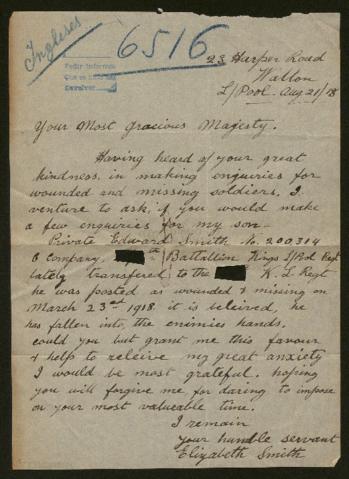 Ingleses
6516
Pedir informes
Devolver
23 Harper Road
Walton
L/Pool. Aug 21/18
Your Most Gracious Majesty.
Having heard of your great
kindness in making enquiries for
wounded and missing soldiers. I
venture to ask, if you would make
a few enquiries for my son.
Private Edward Smith No. 200314
B Company, th Battalion Kings L/Pool Regt
lately transfered to the K. L. Regt
he was posted as wounded & missing on
March 23rd 1918 it is beleived, he
has fallen into, the enemies hands.
could you but grant me this favour
& help to releive my great anxiety
I would be most grateful. hoping
you will forgive me for daring to impose
on your most valueable time.
I remain
your humble servant
Elizabeth Smith